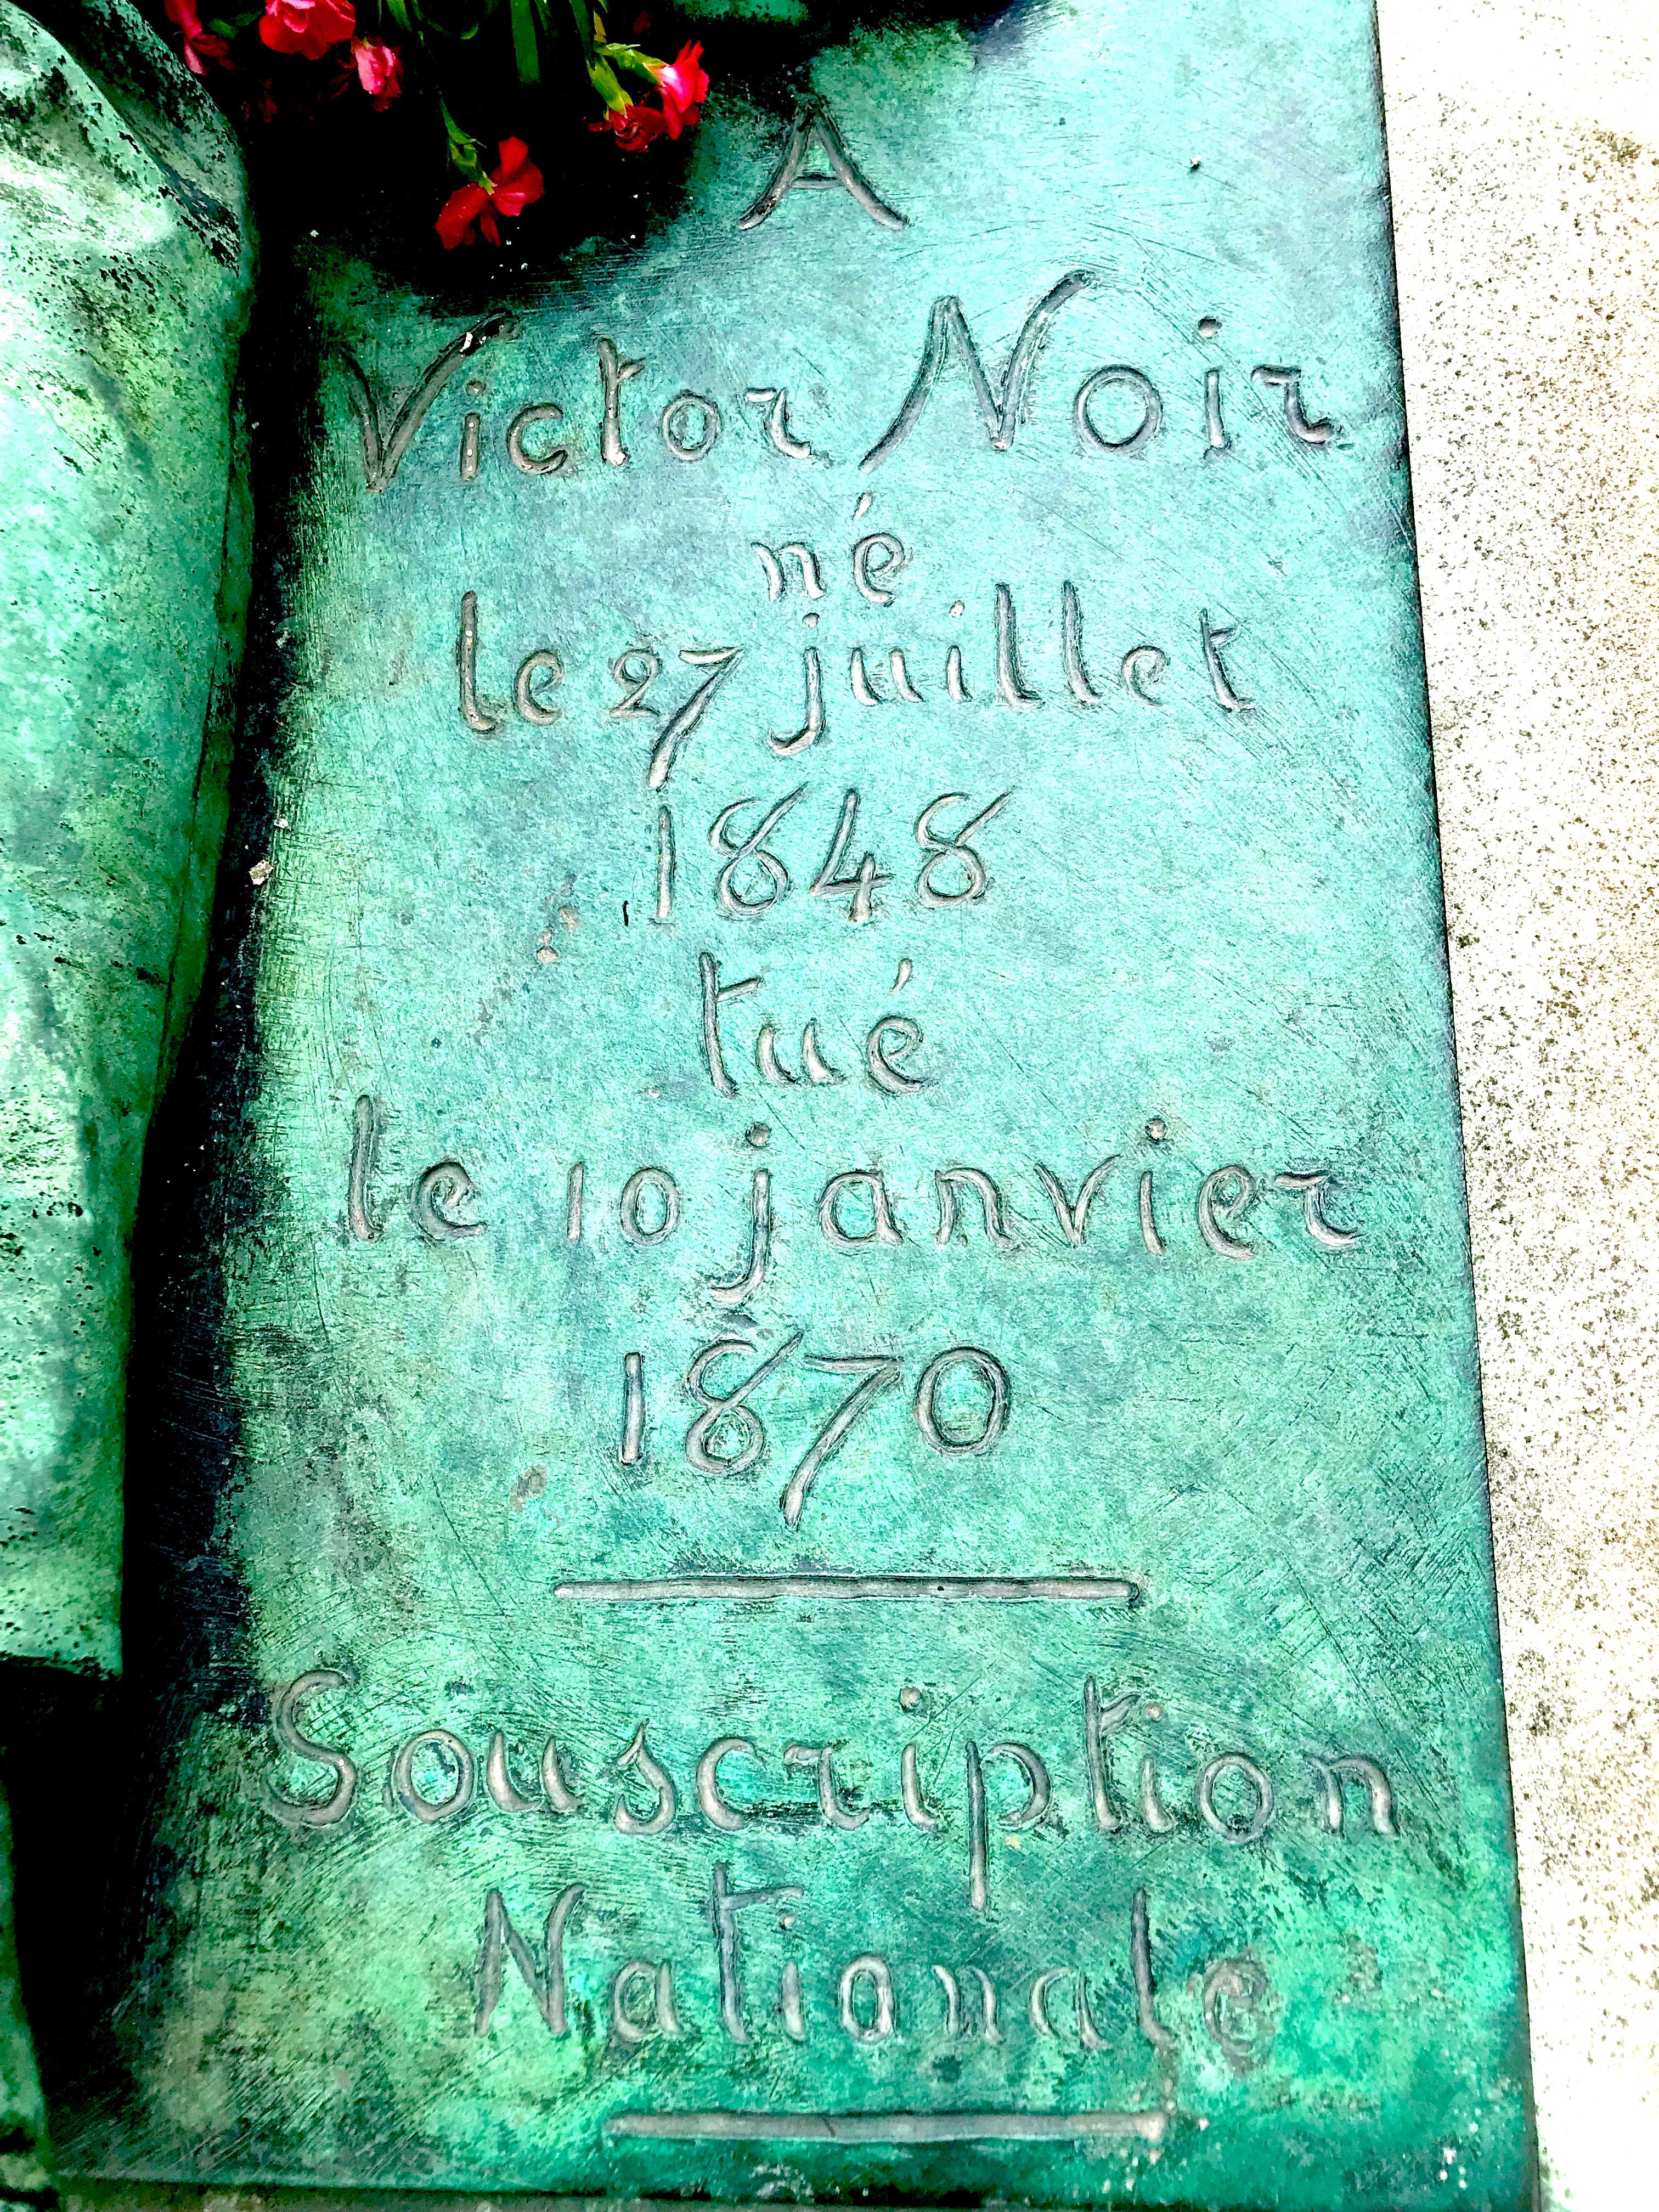 A
Victor Noir
né
le 27 juillet
1848
tué
le 10 janvier
1870
Souscription
Nationale